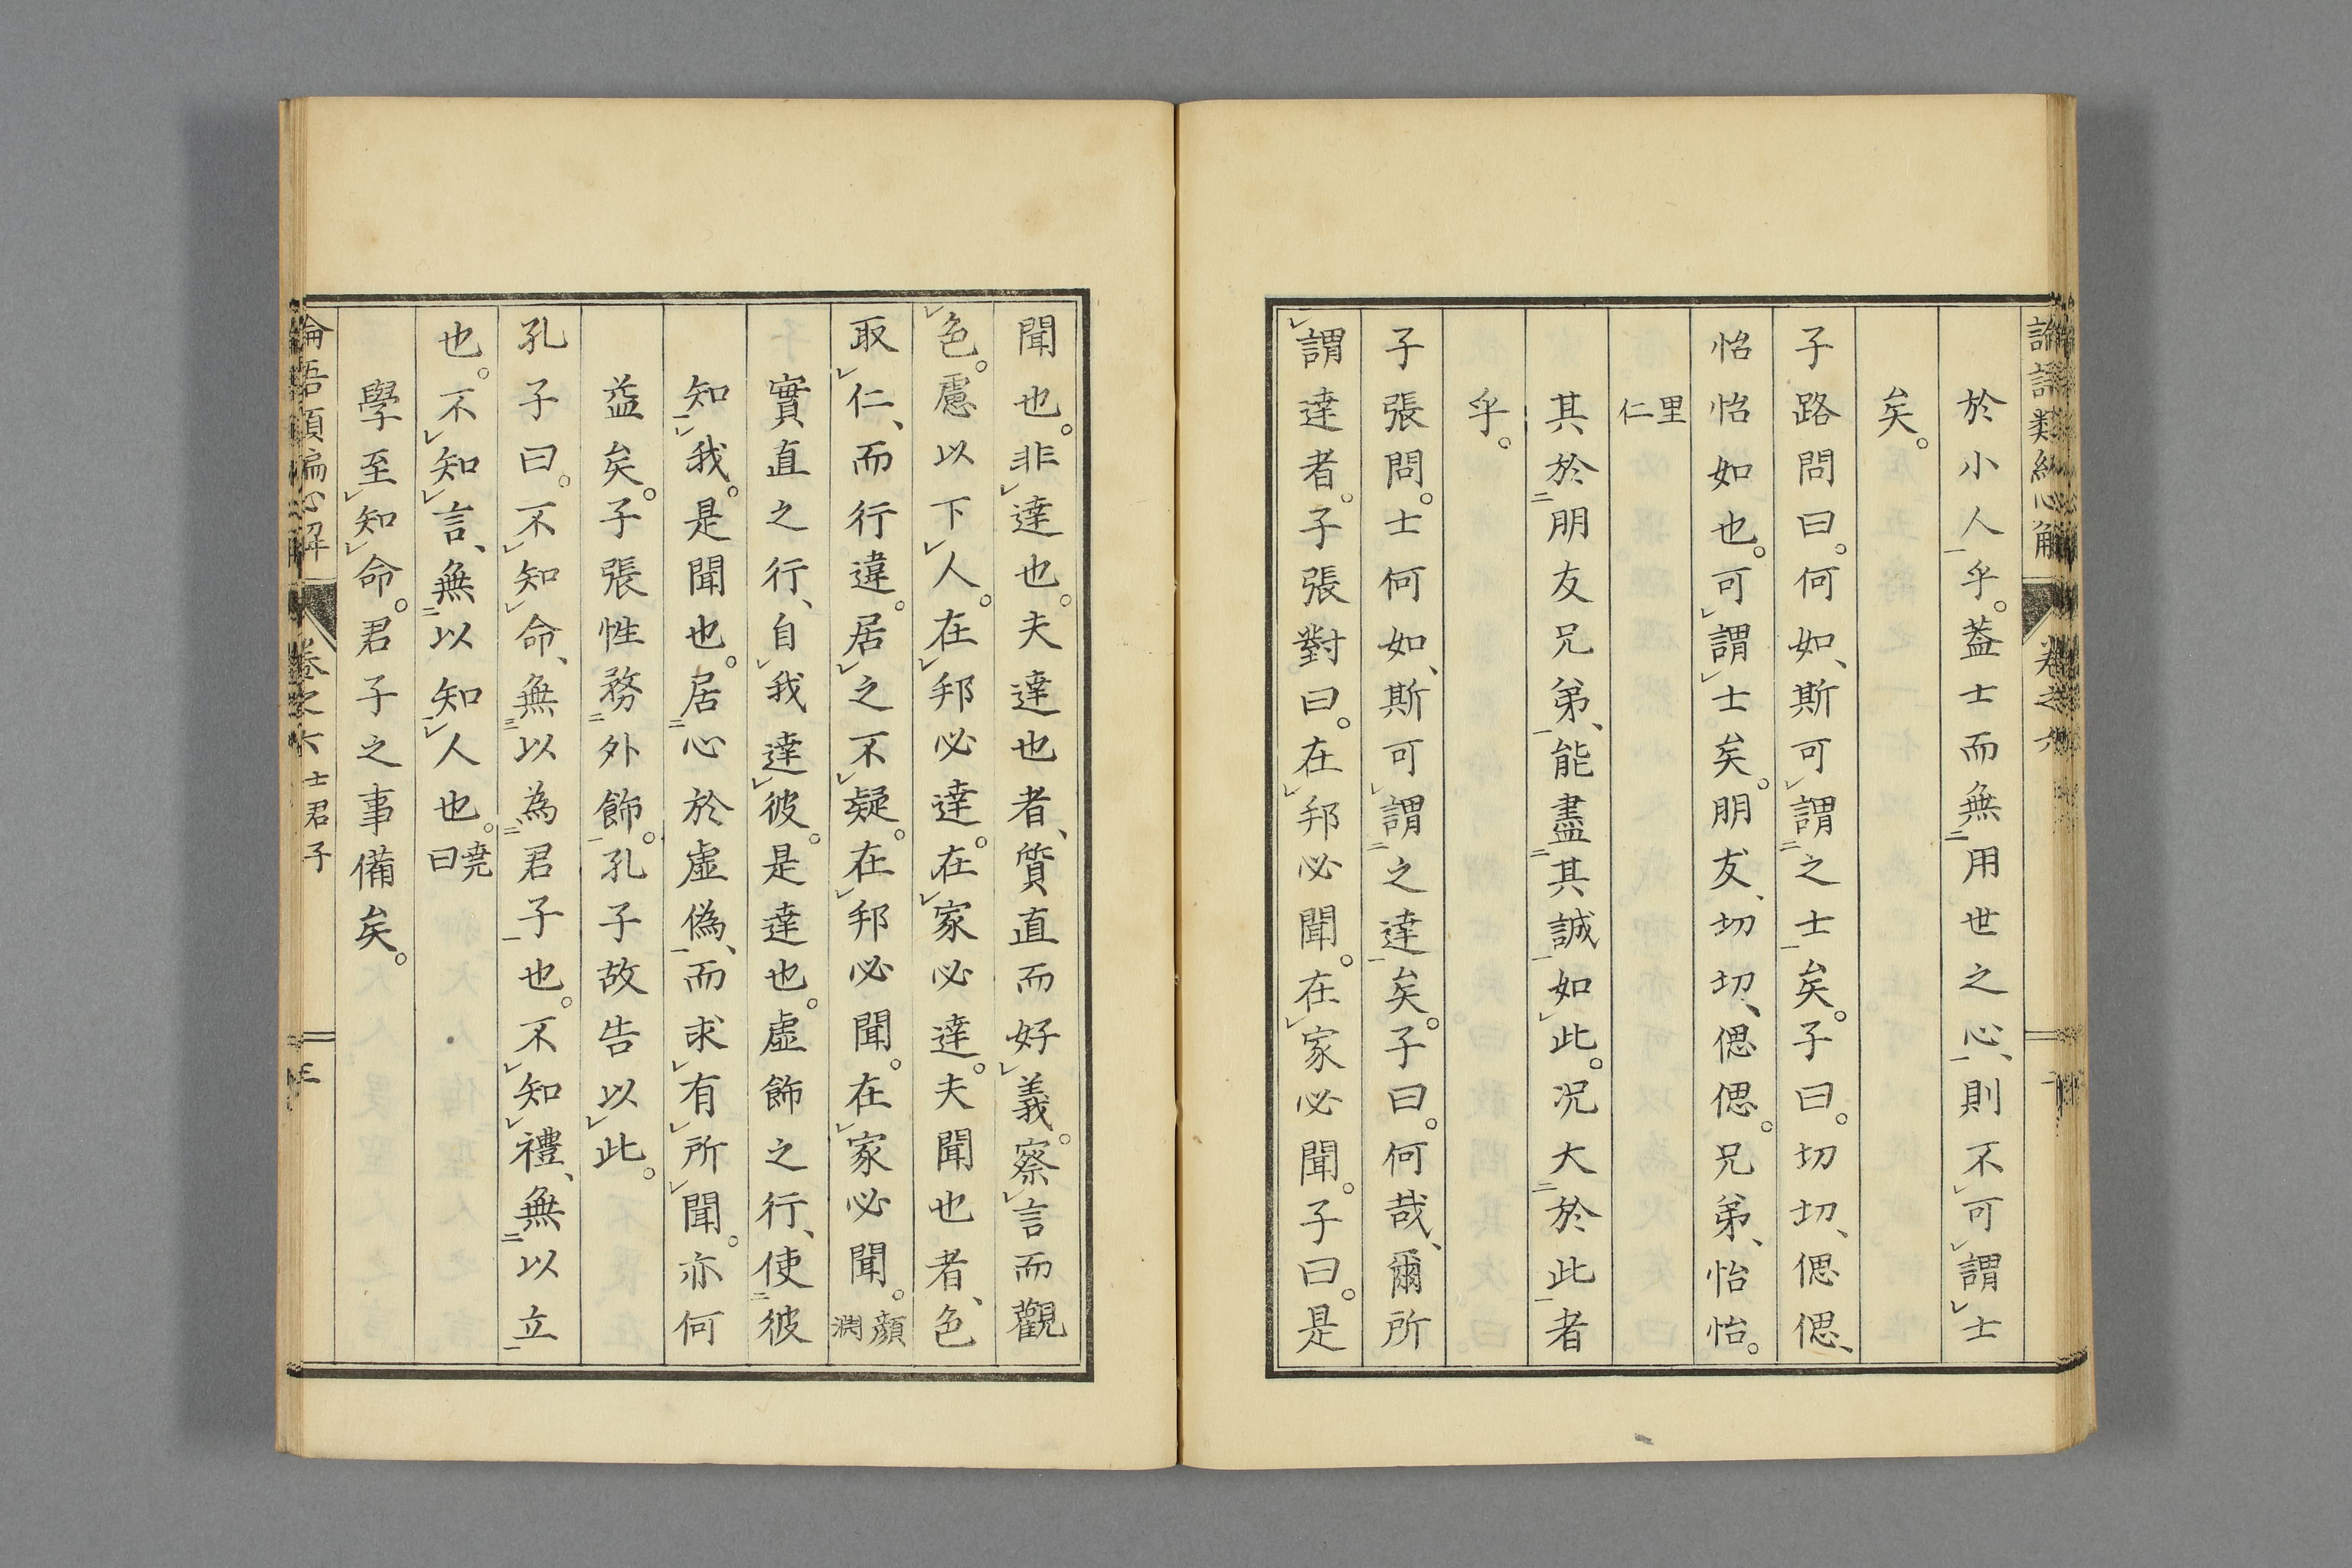 於小人乎。蓋士而無用世之心、則不可謂士
矣。
子路問曰。何如、斯可謂之士矣。子曰。切切、偲偲、
怡怡如也。可謂士矣。朋友、切切、偲偲。兄弟、怡怡。
里仁
其於朋友兄弟、能盡其誠如此。況大於此者
乎。
子張問。士何如、斯可謂之達矣。子曰。何哉、爾所
謂達者。子張對曰。在邦必聞。在家必聞。子曰。是
聞也。非達也。夫達也者、質直而好義。察言而觀
色。慮以下人。在邦必達。在家必達。夫聞也者、色
取仁、而行違。居之不疑。在邦必聞。在家必聞。顏淵
實直之行、自我達彼。是達也。虛飾之行、使彼
知我。是聞也。居心於虛偽、而求有所聞。亦何
益矣。子張性務外飾。孔子故告以此。
孔子曰。不知命、無以為君子也。不知禮、無以立
也。不知言、無以知人也。堯曰
學至知命。君子之事備矣。
卷之六 士君子 三